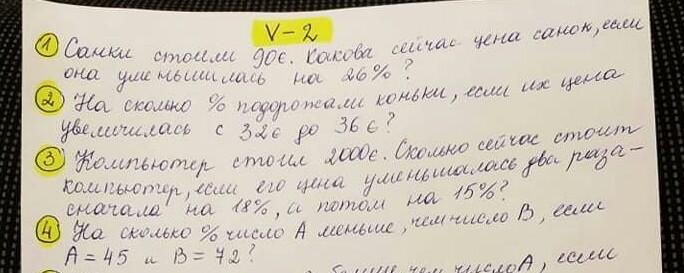 V-2
1 Санки стоили 90€. Какова сейчас цена санок, если
она уменьшилась на 26%?
2 На сколько % подорожали коньки, если их цена
увеличилась с 32€ до 36€?
3 Компьютер стоил 2000€. Сколько сейчас стоит
компьютер, если его цена уменьшалась два раза-
сначала на 18%, а потом на 15%?
4 На сколько % число А меньше, чем число В, если
А = 45 и В = 72?
больше чем число А, если